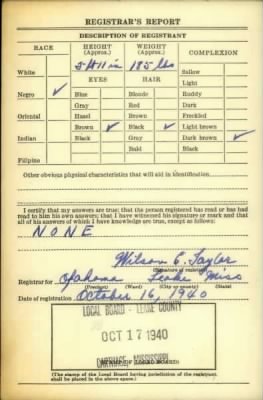 REGISTRAR'S REPORT
DESCRIPTION OF REGISTRANT
RACE HEIGHT (Approx.) WEIGHT (Approx.) COMPLEXION
5 ft 11 in 185 lbs
White Sallow
EYES HAIR Light
Negro ✓ Blue Blonde Ruddy
Gray Red Dark
Oriental Hazel Brown Freckled
Brown ✓ Black ✓ Light brown
Indian Black Gray Dark brown ✓
Bald Black
Filipino
Other obvious physical characteristics that will aid in identification
I certify that my answers are true; that the person registered has read or has had
read to him his own answers; that I have witnessed his signature or mark and that
all of his answers of which I have knowledge are true, except as follows:
NONE
Wilson C. Taylor
(Signature of registrar)
Registrar for Ofahoma Leake Miss
(Precinct) (Ward) (City or county) (State)
Date of registration October 16, 1940
LOCAL BOARD - LEAKE COUNTY
OCT 17 1940
CARTHAGE, MISSISSIPPI
(STAMP OF LOCAL BOARD)
(The stamp of the Local Board having jurisdiction of the registrant
shall be placed in the above space.)